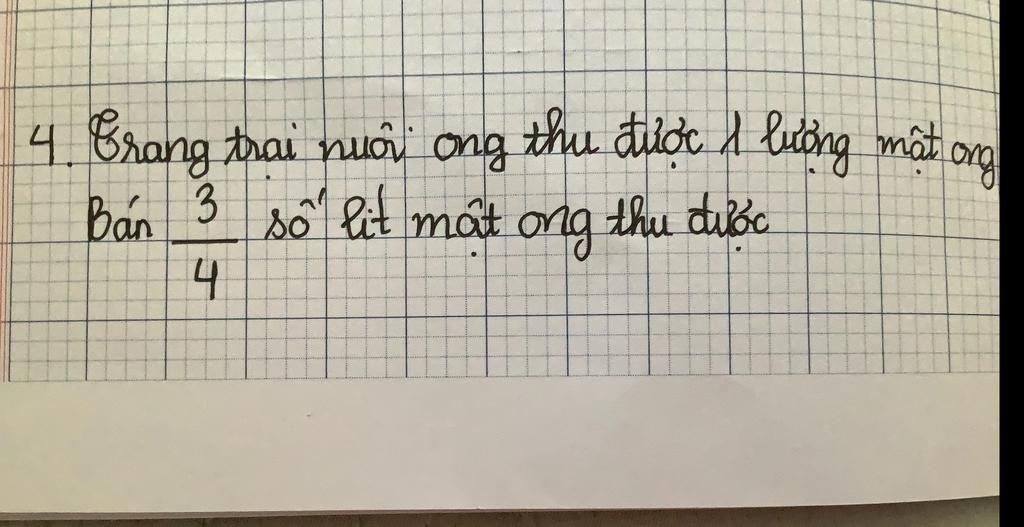 4. Trang trại nuôi ong thu được 1 lượng mật ong
Bán 3/4 số lít mật ong thu được